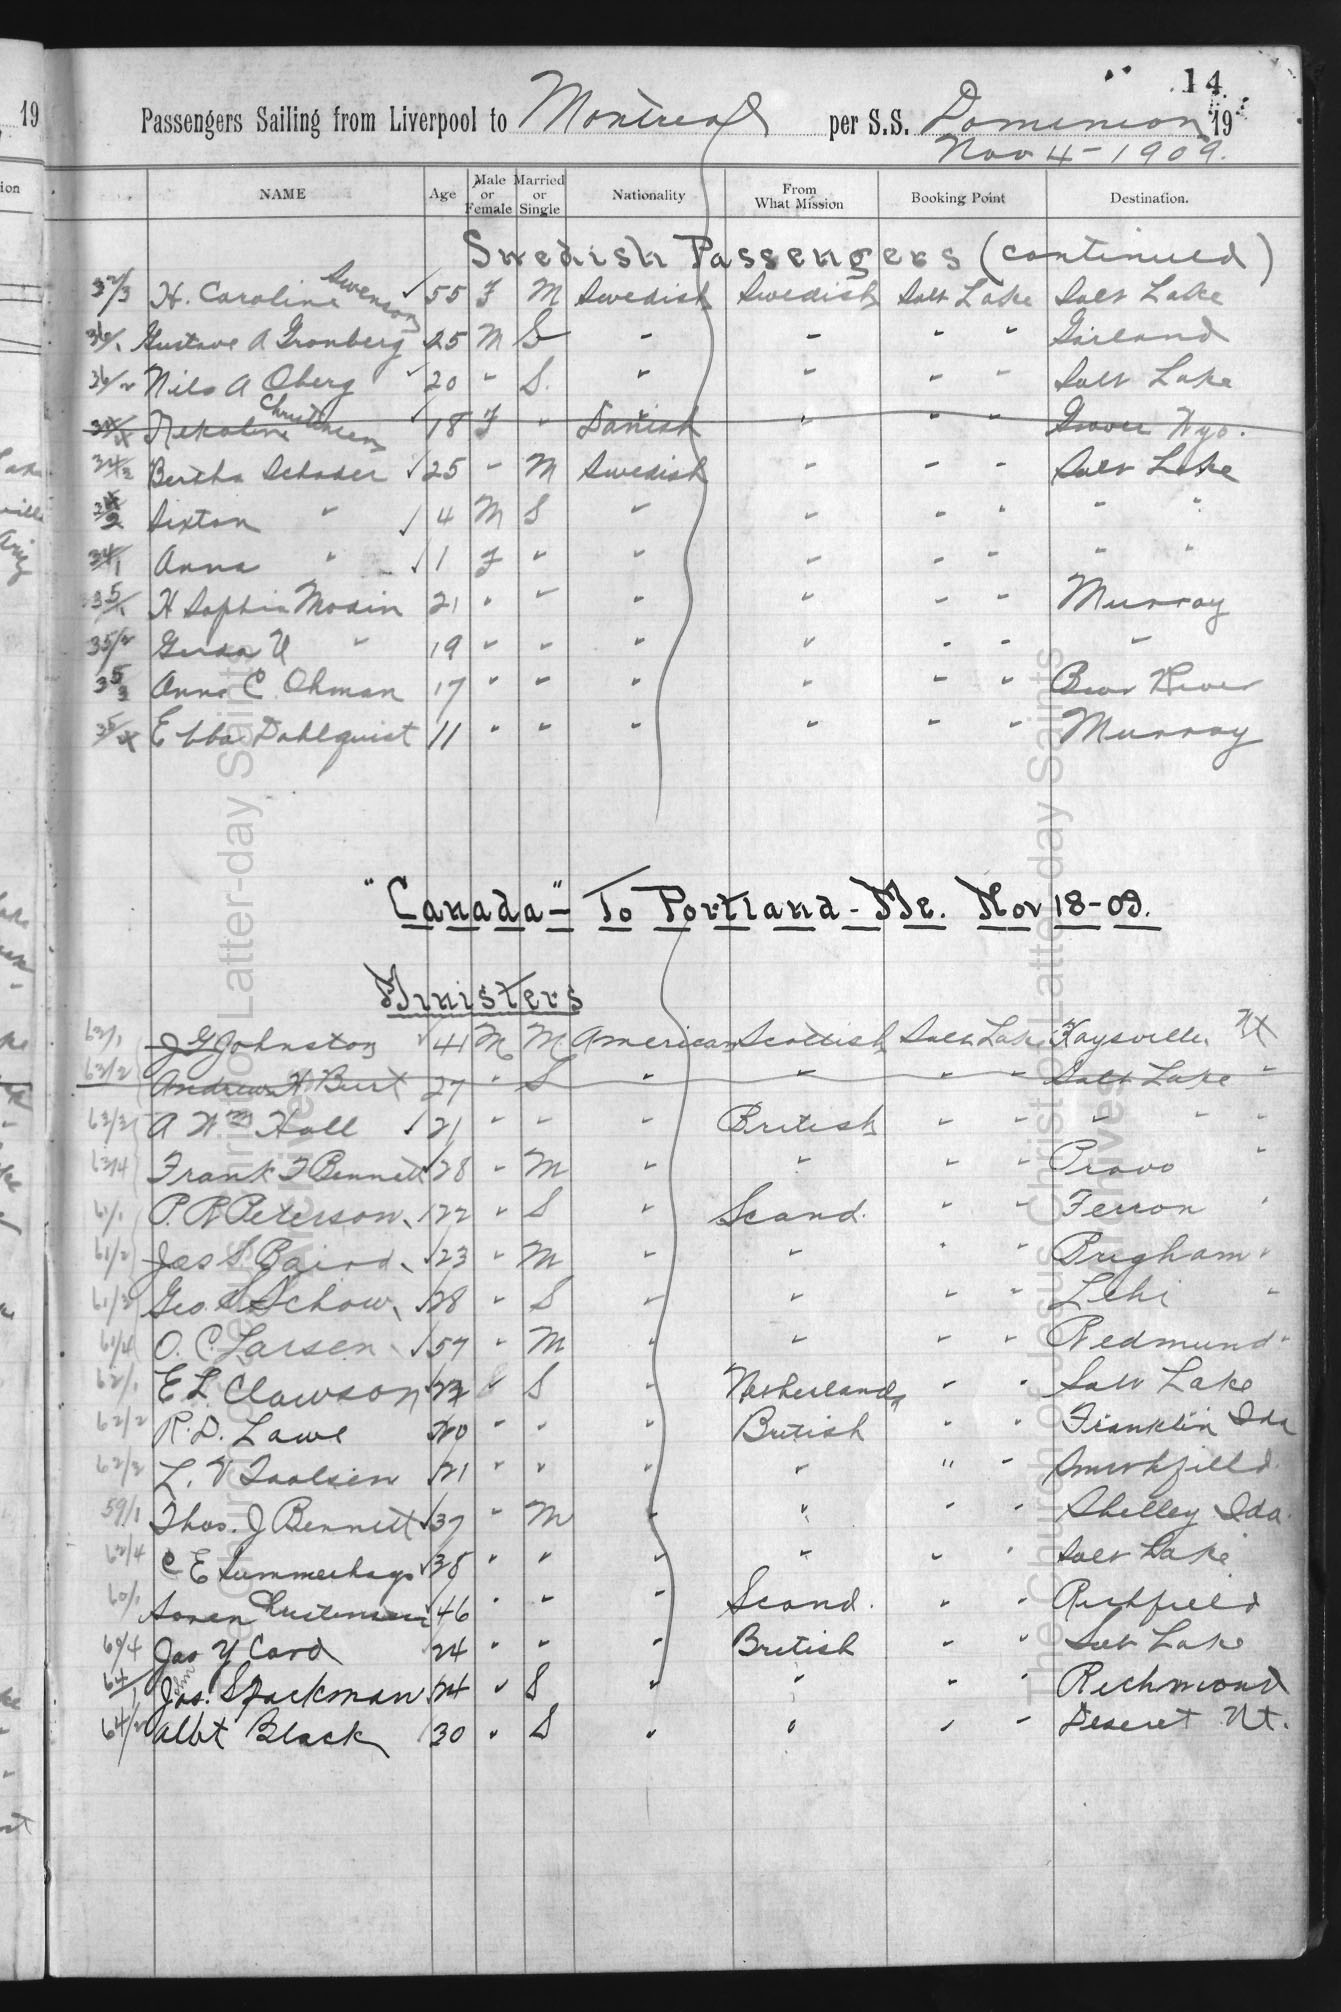 14.
Passengers Sailing from Liverpool to Montreal per S.S. Dominion 19
Nov 4-1909.
NAME Age Male or Female Married or Single Nationality From What Mission Booking Point Destination.
Swedish Passengers (continued)
32/3 H. Caroline Swenson ✓ 55 F M Swedish Swedish Salt Lake Salt Lake
36/1 Gustave A Gronberg 25 M S - - - " Garland
36/2 Nils A Oberg ✓ 20 " S. " " " " Salt Lake
34/4 Nikoline Christensen ✓ 18 F " Danish " " " Grover Wyo.
34/3 Bertha Schader ✓ 25 " M Swedish " " " Salt Lake
34/2 Sixton " ✓ 4 M S " " " " " "
34/1 Anna " ✓ 1 F " " " " " " "
35/1 H Sophia Modin 21 " " " " " " Murray
35/2 Gerda U " 19 " " " " " " "
35/3 Anna C. Ohman 17 " " " " " " Bear River
35/4 Ebba Dahlquist 11 " " " " " " Murray
"Canada"- To Portland - Me. Nov 18-09.
Ministers
63/1 J G Johnston ✓ 41 M M American Scottish Salt Lake Kaysville Ut
63/2 Andrew H Burt 27 " S " " " " Salt Lake "
63/3 A Wm Hall ✓ 21 " " " British " " " " "
63/4 Frank T Bennett ✓ 28 " M " " " " Provo "
61/1 P. R Peterson ✓ 22 " S " Scand. " " Ferron "
61/2 Jas S. Baird ✓ 23 " M " " " " Brigham "
61/3 Geo. Schow ✓ 28 " S " " " " Lehi "
61/4 O. C. Larsen ✓ 57 " M " " " " Redmund "
62/1 E L Clawson S " Netherlands " " Salt Lake
62/2 R. D. Lowe 20 " " " British " " Franklin Ida
62/3 L. Toolsen 21 " " " " " "
59/1 Thos. J Bennett ✓ 37 " M " " " " Shelley Ida.
62/4 C E Summerhays ✓ 38 " " " " " " Salt Lake
60/1 Soren Christensen ✓ 46 " " " Scand. " " Richfield
60/4 Jas Y Card 24 " " " British " " Salt Lake
64/1 Jos. John Spackman 24 " S " " " " Richmond
64/2 Albt Black 30 " S " " " " Deseret Ut.
The Church of Jesus Christ of Latter-day Saints
Archives